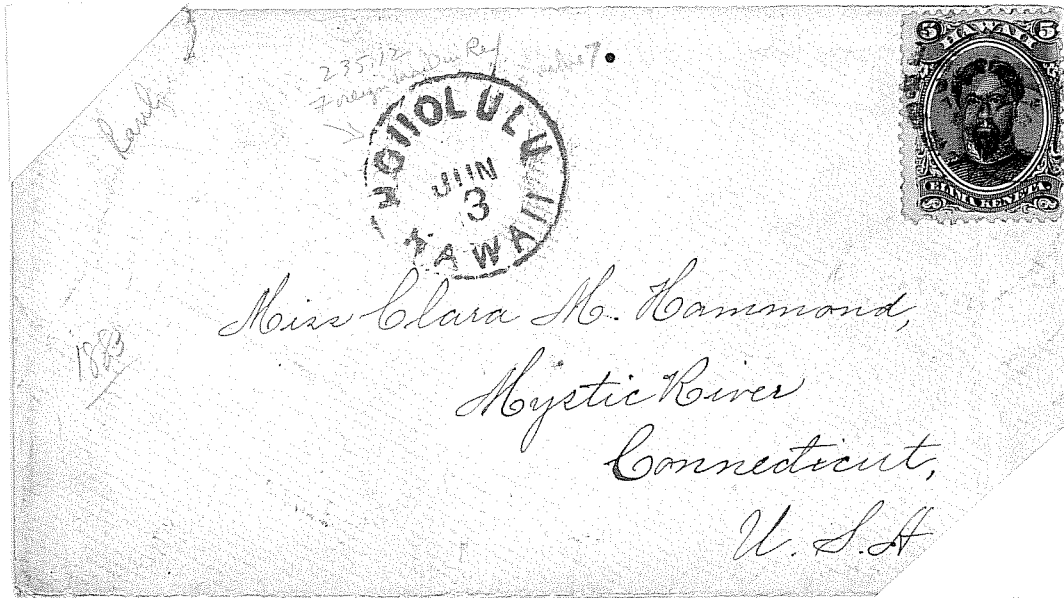 5 HAWAII 5
ELIMA KENETA
235.12
Foreign
HONOLULU
JUN
3
HAWAII
Miss Clara M. Hammond,
1883
Mystic River
Connecticut,
U. S. A